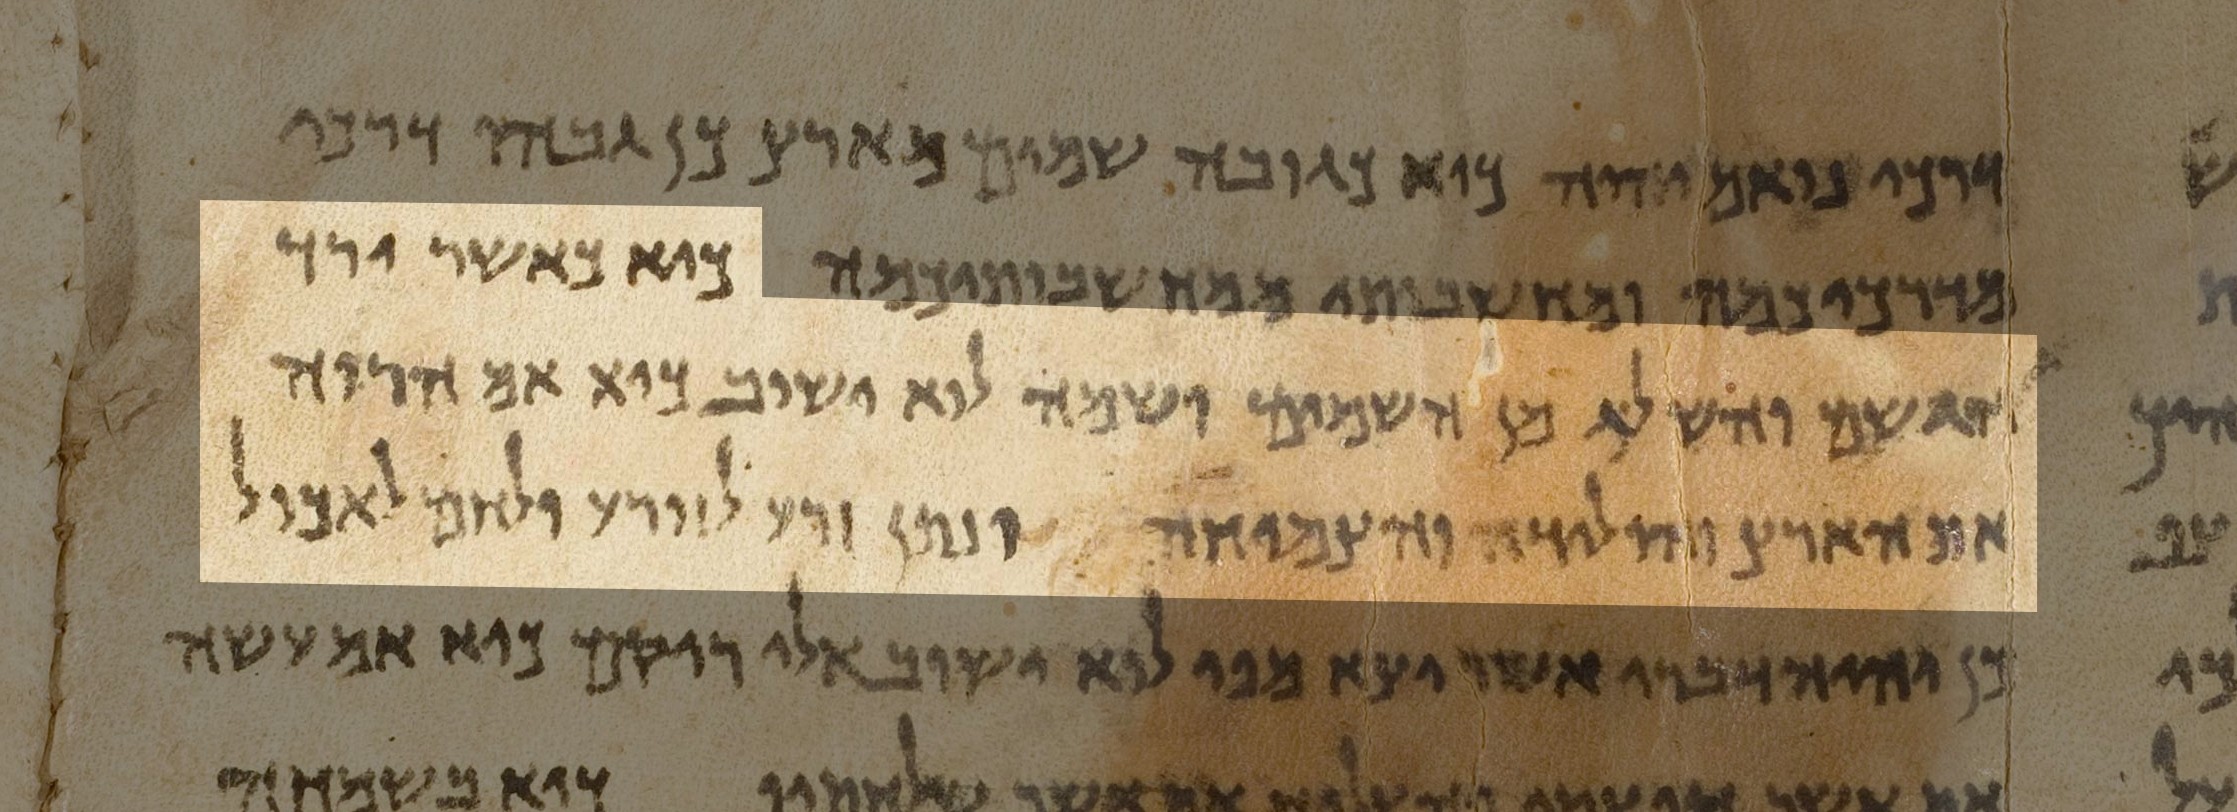 דרכי נואם יהוה כיא כגובה שמים מארץ כן גבהו דרכי
מדרכיכמה ומחשבותי ממחשבותיכמה כיא כאשר ירד
הגשם והשלג מן השמים ושמה לוא ישוב כיא אם הרוה
את הארץ והולידה והצמיחה ונתן זרע לזורע ולחם לאכול
כן יהיה דברי אשר יצא מפי לוא ישוב אלי ריקם כיא אם עשה
את אשר חפצתי והצליח את אשר שלחתיו כיא בשמחה